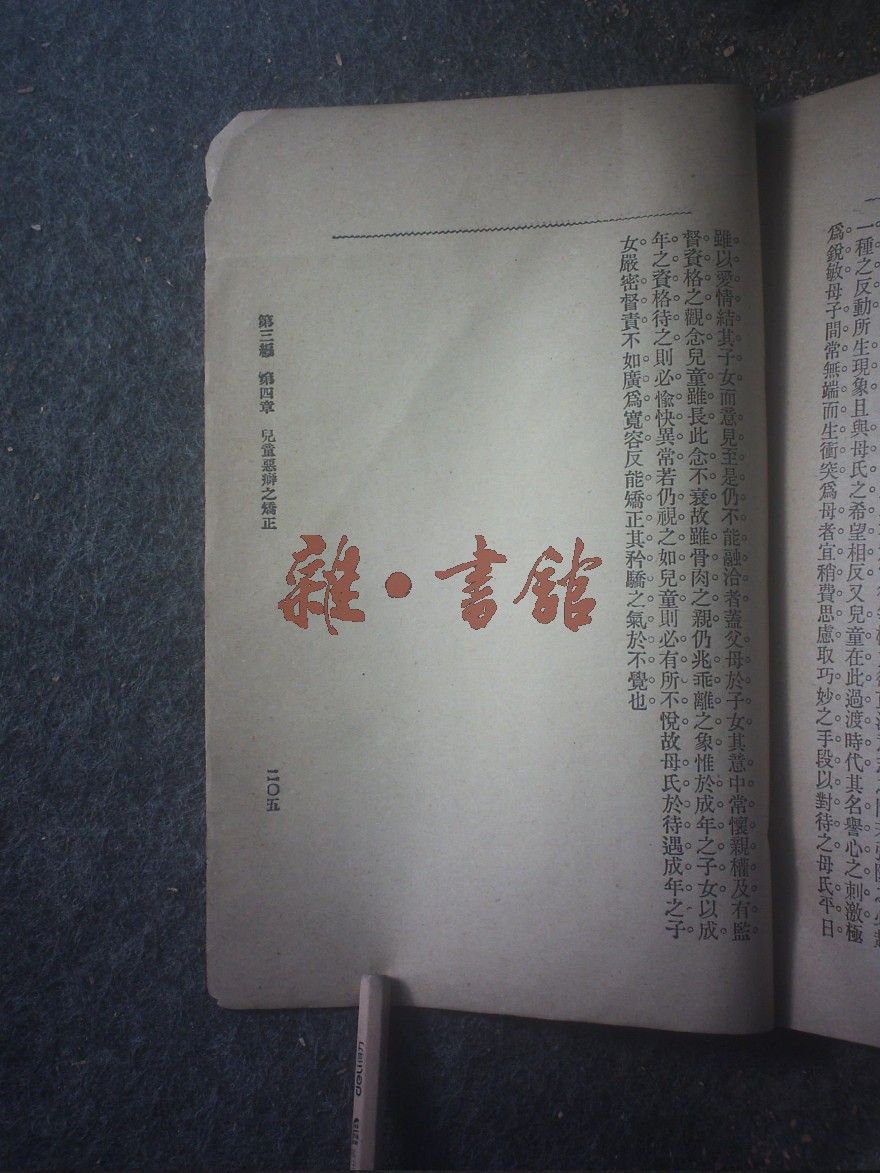 一種之反動所生現象且與母氏之希望相反又兒童在此過渡時代其名譽心之刺激極
爲銳敏母子間常無端而生衝突爲母者宜稍費思慮取巧妙之手段以對待之母氏平日
雖以愛情結其子女而意見至是仍不能融洽者蓋父母於子女其意中常懷親權及有監
督資格之觀念兒童雖長此念不衰故雖骨肉之親仍兆乖離之象惟於成年之子女以成
年之資格待之則必愉快異常若仍視之如兒童則必有所不悅故母氏於待遇成年之子
女嚴密督責不如廣爲寬容反能矯正其矜驕之氣於不覺也
第三編 第四章 兒童惡癖之矯正
二〇五
雜·書館
deli得力